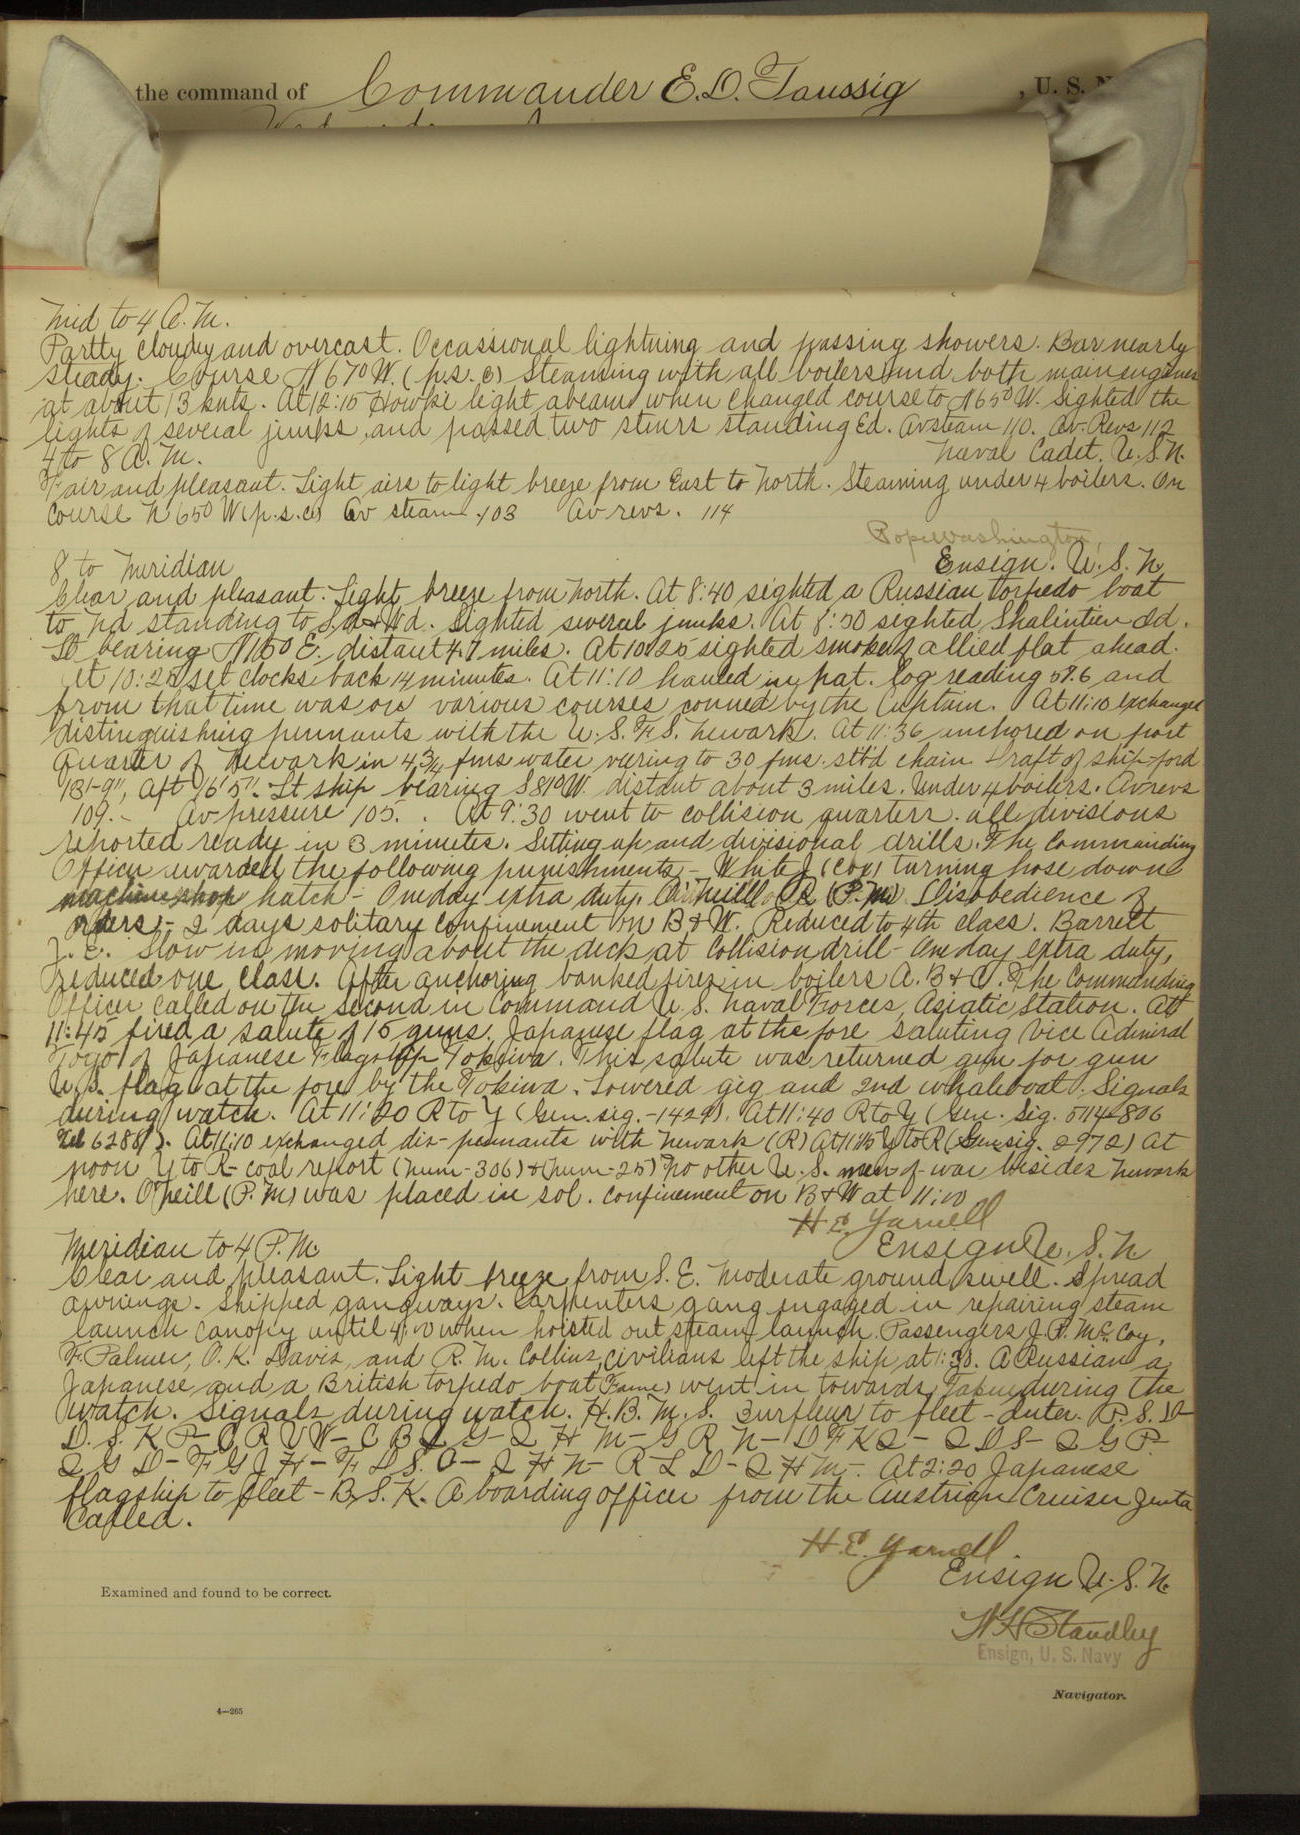 the command of Commander E. D. Taussig , U. S. N
Mid to 4 A. M.
Partly cloudy and overcast. Occassional lightning and passing showers. Bar nearly
steady. Course N 67° W. (p.s.c) Steaming with all boilers and both main engines
at about 13 knts. At 12:10 Howki light abeam when changed course to N 65° W. Sighted the
lights of several junks, and passed two stmrs standing Ed. Av steam 110. Av. Revs 112
4 to 8 A. M. Naval Cadet. U. S. N.
Fair and pleasant. Light airs to light breeze from East to North. Steaming under 4 boilers. On
course N 65° W (p.s.c) Av steam 103 Av revs. 114
Pope Washington,
8 to Meridian Ensign. U. S. N.
Clear and pleasant. Light breeze from North. At 8:40 sighted a Russian torpedo boat
to Nd standing to Sd & Wd. Sighted several junks. At 8:50 sighted Shalintien Id.
bearing E. distant 4.7 miles. At 10:25 sighted smoke of allied flat ahead.
At 10:25 set clocks back 14 minutes. At 11:10 hauled in pat. log reading 57.6 and
from that time was on various courses conned by the Captain. At 11:10 exchanged
distinguishing pennants with the U. S. F. S. Newark. At 11:36 anchored on port
Quarter of Newark in 4 3/4 fms water veering to 30 fms. stb'd chain draft of ship ford
13'-9", aft 16'5". Lt ship bearing S 81° W. distant about 3 miles. Under 4 boilers. Av revs
109. - Av pressure 105. . At 9:30 went to collision quarters. all divisions
reported ready in 3 minutes. Setting up and divisional drills. The Commanding
Officer awarded the following punishments - White J (Cox) turning hose down
machine shop hatch - One day extra duty. O'Neill R (P.M) Disobedience of
orders - 2 days solitary confinement on B & W. Reduced to 4th class. Barrett
J. E. Slow in moving about the deck at Collision drill - One day extra duty,
reduced one class. After anchoring banked fires in boilers A. B & C. The Commanding
Officer called on the Second in Command U. S. Naval Forces, Asiatic Station. At
11:45 fired a salute of 15 guns. Japanese flag at the fore saluting Vice Admiral
Togo of Japanese Flagship Tokiwa. This salute was returned gun for gun
U. S. flag at the fore by the Tokiwa. Lowered gig and 2nd whaleboat. Signals
during watch. At 11:20 R to Y (Gen. sig. - 1429). At 11:40 R to Y (Gen. Sig. 5114-806
Tel 6288). At 11:10 exchanged dis- pennants with Newark (R) At 11:45 Y to R (Gen sig. 2972) At
noon Y to R - coal report (Num-306) & (Num-25) No other U. S. men of war besides Newark
here. O'Neill (P. M) was placed in sol. confinement on B & W at 11:00
H E. Yarnell
Meridian to 4 P. M. Ensign U. S. N
Clear and pleasant. Light breeze from S. E. Moderate ground swell. Spread
awnings. Shipped gangways. Carpenters gang engaged in repairing steam
launch canopy until 4:00 when hoisted out steam launch. Passengers J. P. McCoy,
F. Palmer, O. K. Davis, and R. M. Collins, civilians left the ship at 1:30. A Russian a
Japanese and a British torpedo boat (Fame) went in towards Taku during the
watch. Signals during watch. H. B. M. S. to fleet - Inter. P. S. D-
D. S. K P- C R V W- C B L G- Q H M- G R N- D F K Q- Q D S- Q G P-
Q G D- F G J H- F D S. C- Q H N- R L D- Q H M-. At 2:20 Japanese
flagship to fleet - B. S. K. A boarding officer from the Austrian Cruiser Zenta
Called.
H. E. Yarnell
Ensign U. S. N.
Examined and found to be correct.
W H Standley
Ensign, U. S. Navy
Navigator.
4—265